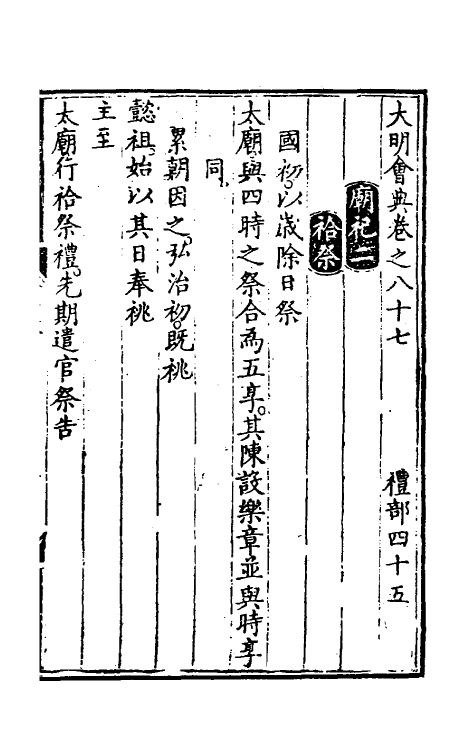 大明會典卷之八十七　禮部四十五
廟祀二
祫祭
國初。以歲除日祭
太廟。與四時之祭合爲五享。其陳設樂章並與時享
同。
累朝因之。弘治初。旣祧
懿祖。始以其日奉祧
主至
太廟行祫祭禮。先期遣官祭告